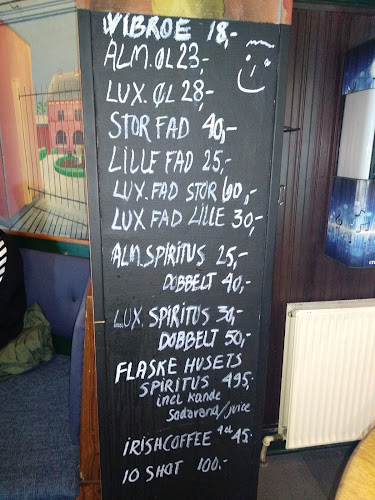 WIBROE 18,-
ALM. ØL 23,-
LUX. ØL 28,-
STOR FAD 40,-
LILLE FAD 25,-
LUX. FAD STOR 60,-
LUX FAD LILLE 30,-
ALM. SPIRITUS 25,-
DOBBELT 40,-
LUX. SPIRITUS 30,-
DOBBELT 50,-
FLASKE HUSETS
SPIRITUS 495,-
incl kande
sodavand/juice
IRISHCOFFEE 4cl 45.-
10 SHOT 100.-